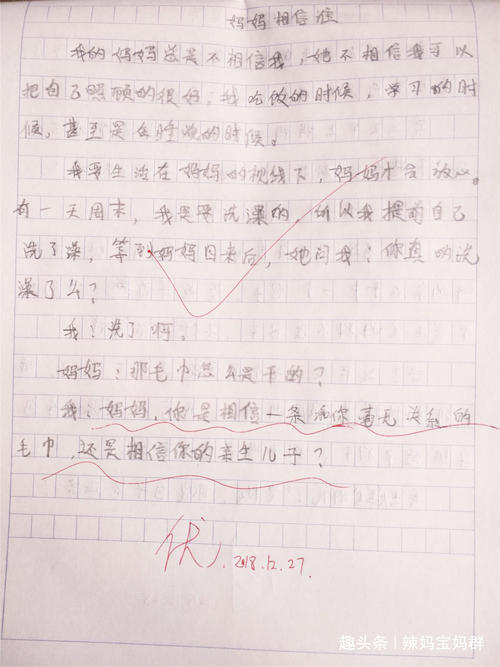 妈妈相信谁
我的妈妈总是不相信我，她不相信我可以
把自己照顾的很好，我吃饭的时候，学习的时
候，甚至是在睡觉的时候。
我要生活在妈妈的视线下，妈妈才会放心。
有一天周末，我是要洗澡的，所以我提前自己
洗了澡，等到妈妈回来后，她问我：你真的洗
澡了么？
我：洗了啊。
妈妈：那毛巾怎么是干的？
我：妈妈，你是相信一条和你毫无关系的
毛巾，还是相信你的亲生儿子？
优
2018.12.27.
趣头条 | 辣妈宝妈群